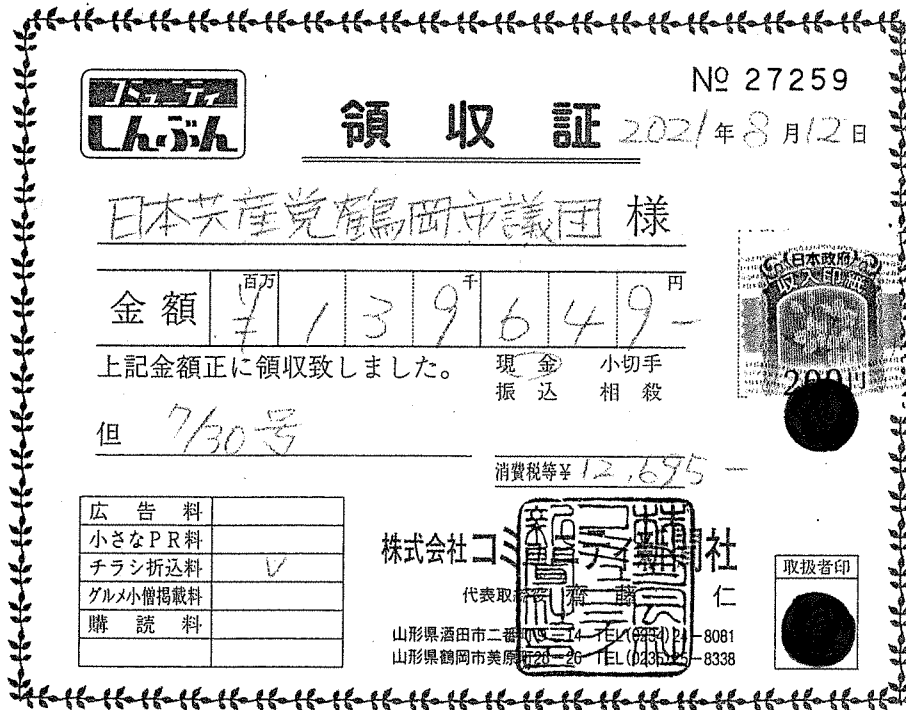 コミュニティ
しんぶん
№ 27259
領収証
2021年8月12日
日本共産党鶴岡市議団 様
金額 百万 千 円
¥139649-
上記金額正に領収致しました。
現金 小切手
振込 相殺
但 7/30号
消費税等¥12,695-
日本政府
収入印紙
200円
広告料
小さなPR料
チラシ折込料 V
グルメ小僧掲載料
購読料
株式会社コミュニティ新聞社
代表取締役 齋藤 仁
山形県酒田市二番町9-14 TEL(0234)24-8081
山形県鶴岡市美原町26-26 TEL(0235)25-8338
取扱者印